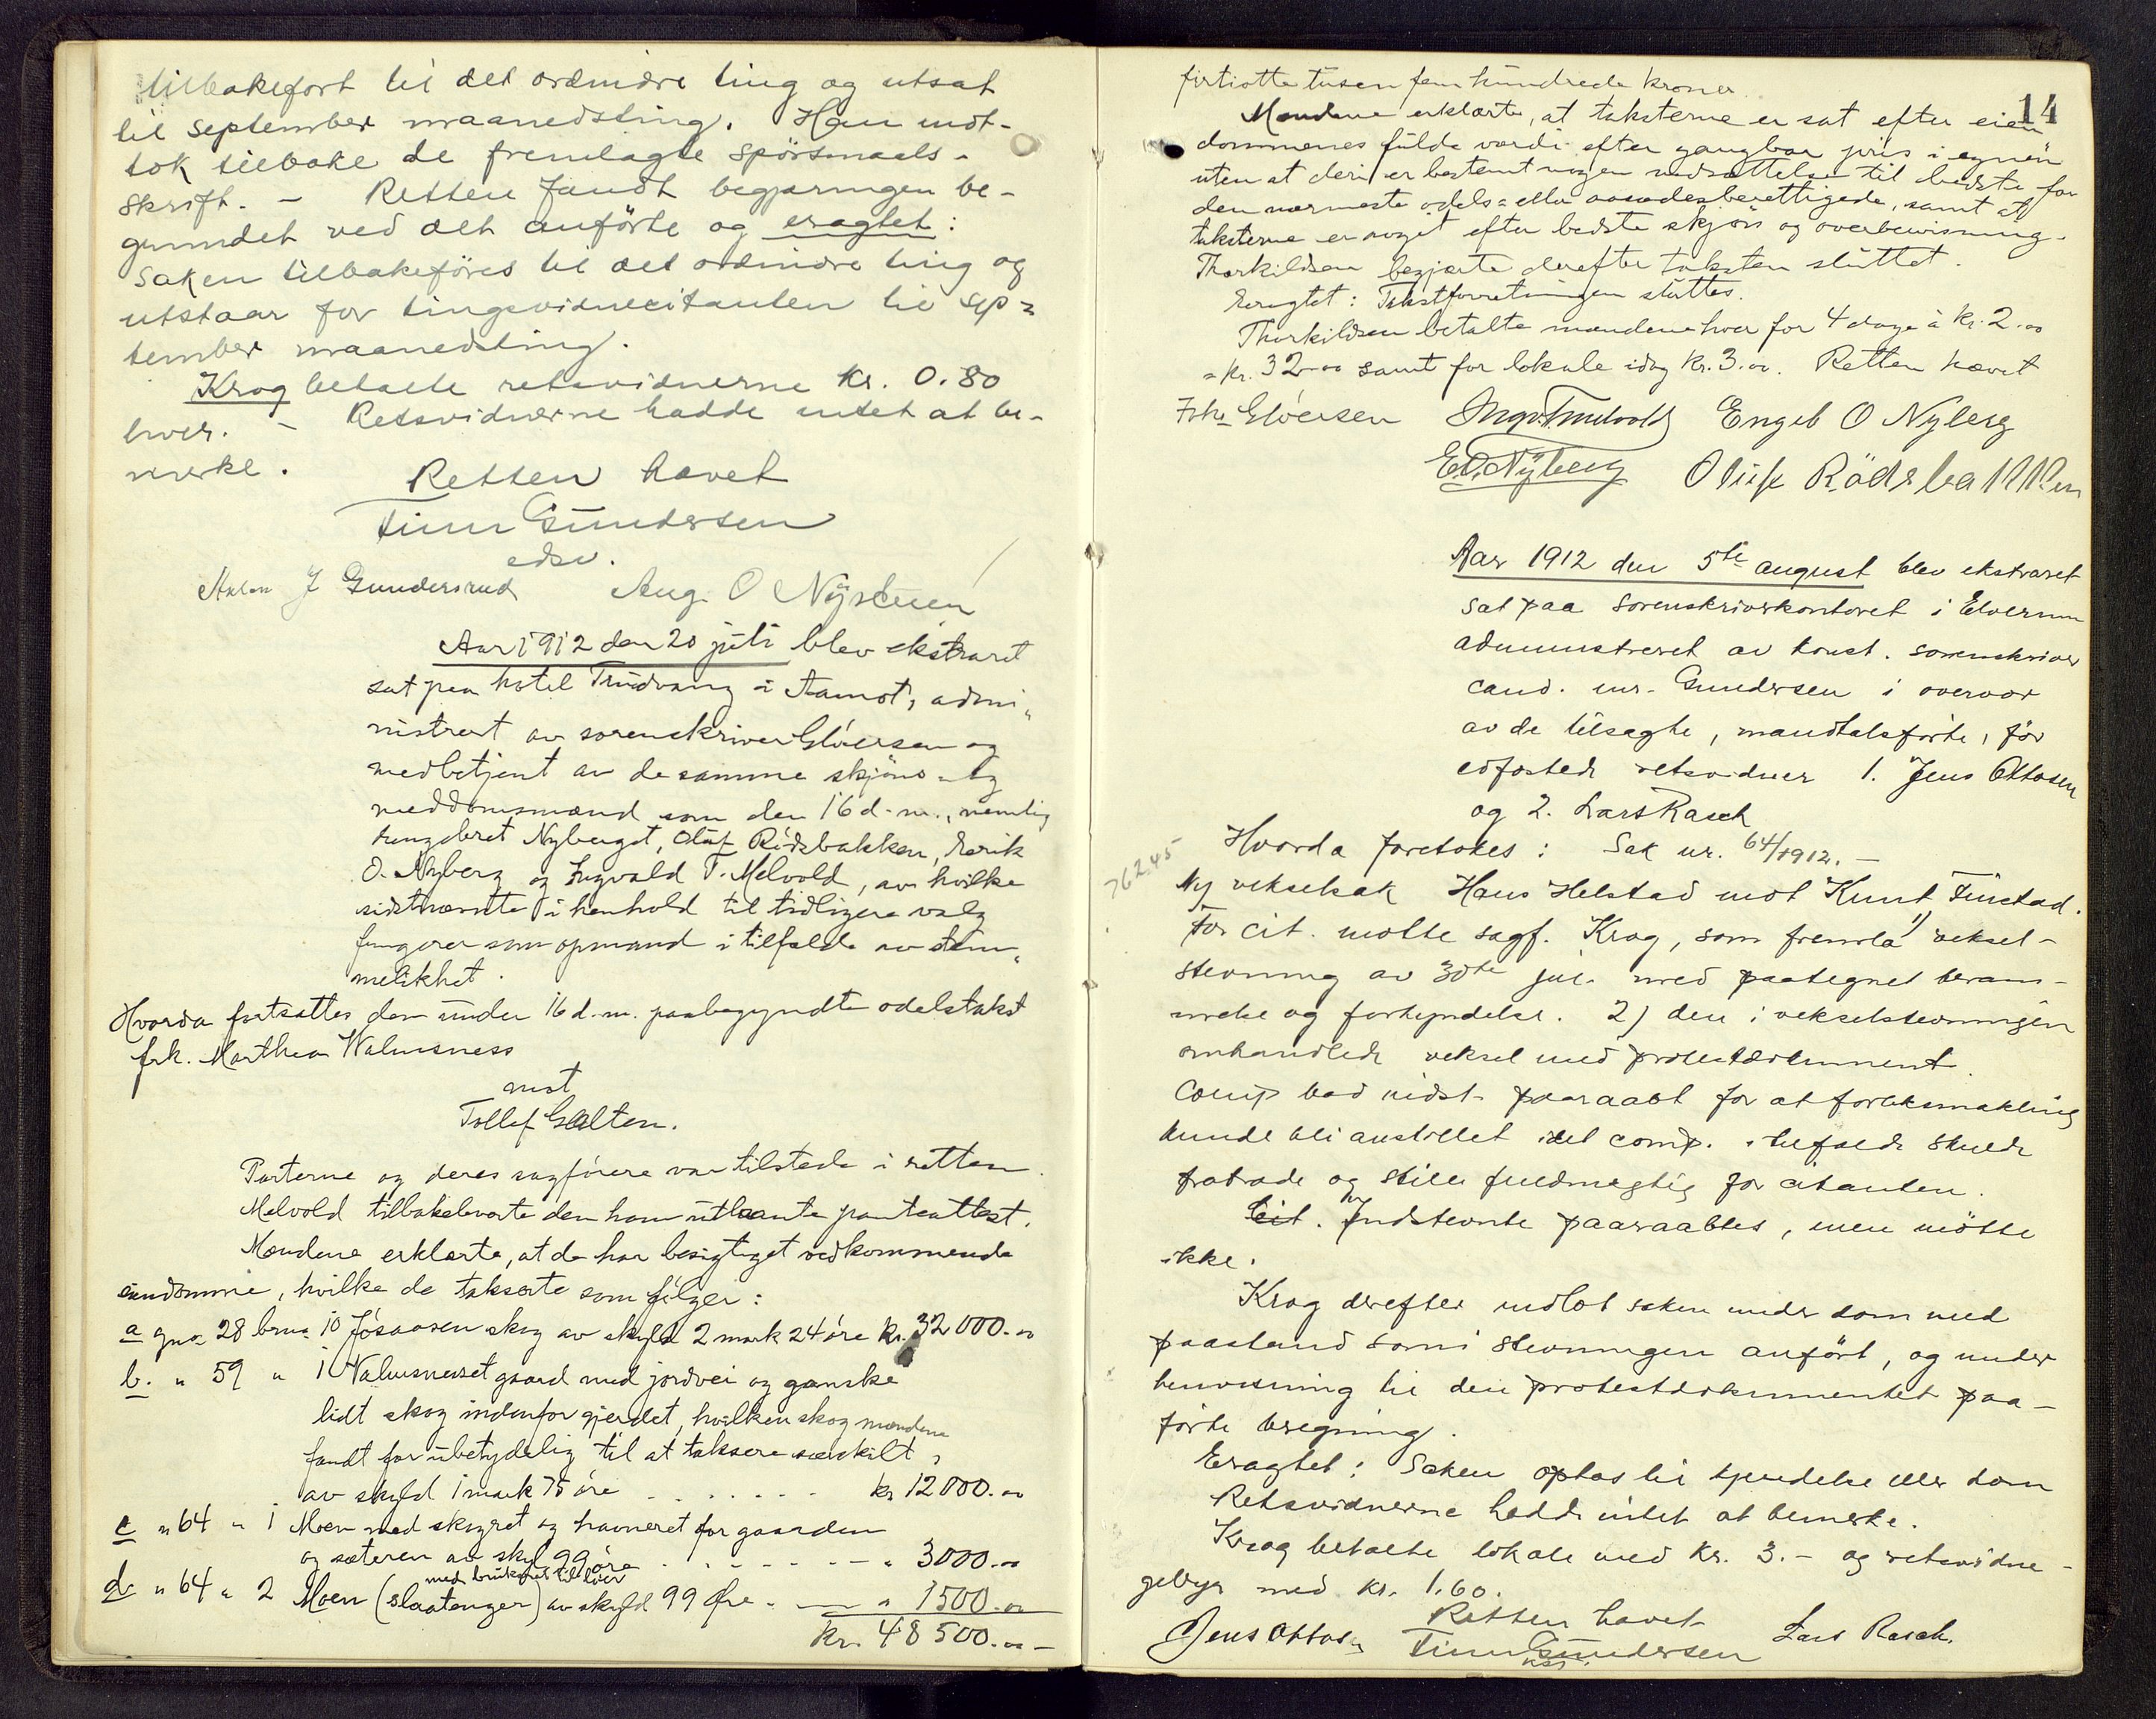 tilbakeført til det ordinære ting og utsat
til september maanedsting. Han mot-
tok tilbake de fremlagte spörsmaals-
skrift. - Retten fandt begjæringen be-
grundet ved det anförte og eragtet:
Saken tilbakeföres til det ordinære ting og
utstaar for tingsvidnecitanten til sep=
tember maanedsting.
Krog betalte retsvidnerne kr. 0.80
hver. - Retsvidnerne hadde intet at be-
merke.
Retten hævet
Finn Gundersen
edsv.
Anton J Gundersrud Aug. O Nystuen
Aar 1912 den 20 juli blev ekstraret
sat paa hotel Trudvang i Aamot, admi-
nistrert av sorenskriver Glöersen og
medbetjent av de samme skjöns- og
meddomsmænd som den 16 d.m., nemlig
Engebret Nyberget, Oluf Rödsbakken, Eerik
O. Nyberg og Ingvald T. Melvold, av hvilke
sidstnævnte i henhold til tidligere valg
fungerer som opmand i tilfælde av stem-
melikhet.
Hvorda fortsattes den under 16 d.m. paabegyndte odelstakst
frk. Marthea Walmsness
mot
Tollef Galten.
Parterne og deres sagförere var tilstede i retten.
Melvold tilbakeleverte den ham utlaante panteattest.
Mændene erklærte, at de har besigtiget vedkommende
eiendomme, hvilke de takserte som fölger:
a gno 28 bruno 10 Jösaasen skog av skyld 2 mark 24 öre kr. 32 000.00
b. " 59 " 1 Valmsneset gaard med jordvei og ganske
lidt skog indenfor gjerdet, hvilken skog mændene
fandt for ubetydelig til at taksere særskilt,
av skyld 1 mark 75 öre - - - - - - kr 12 000.00
c " 64 " 1 Moen med skogret og havneret for gaarden
og sæteren av skyl 99 öre - - - - - " 3000.00
med bruksret til löer
d " 64 " 2 Moen (slaatenger) av skyld 99 Øre - — " 1500.00
kr. 48 500.00 -
14
firtiotte tusen fem hundrede kroner
Mændene erklærte, at taksterne er sat efter eien
dommenes fulde værdi efter gangbar pris i egnen
uten at deri er bestemt nogen nedsættelse til bedste for
den nærmeste odels= eller aasædesberettigede, samt at
taksterne er avgit efter bedste skjön og overbevisning.
Thorkildsen begjærte derefter taksten sluttet.
Eragtet: Takstforretningen sluttes.
Thorkildsen betalte mændene hver for 4 dage à kr. 2.00
= kr. 32.00 samt for lokale idag kr. 3.00. Retten hævet
Glöersen Ingv. T Melvold Engeb O Nyberg
E. O. Nyberg Oluf Rödsbakken
Aar 1912 den 5te august blev ekstraret
sat paa sorenskriverkontoret i Elverum
administreret av konst. sorenskriver
cand. jur. Gundersen i overvær
av de tilsagte, mandtalsförte, för
edfæstede retsvidner 1. Jens Ottosen
og 2. Lars Rasch
762.45
Hvorda foretokes: Sak nr. 64/1912. -
Ny vekselsak Hans Helstad mot Knut Finstad.
For cit. mötte sagf. Krog, som fremla 1) veksel-
stevning av 30te juli med paategnet beram-
melse og forkyndelse. 2) den i vekselstevningen
omhandlede veksel med protestdokument.
Comp bad indst. paaraabt for at forliksmækling
kunde bli anstillet idet comp. i tilfælde skulde
fratræde og stille fuldmægtig for citanten.
Cit. Indstevnte paaraabtes, men mötte
ikke.
Krog derefter indlot saken under dom med
paastand som i stevningen anfört, og under
henvisning til den protestdokumentet paa-
förte beregning.
Eragtet: Saken optas til kjendelse eller dom
Retsvidnerne hadde intet at bemerke.
Krog betalte lokale med kr. 3.- og retsvidne-
gebyr med kr. 1.60.
Retten hævet
Jens Ottosen Finn Gundersen Lars Rasch.
kst.